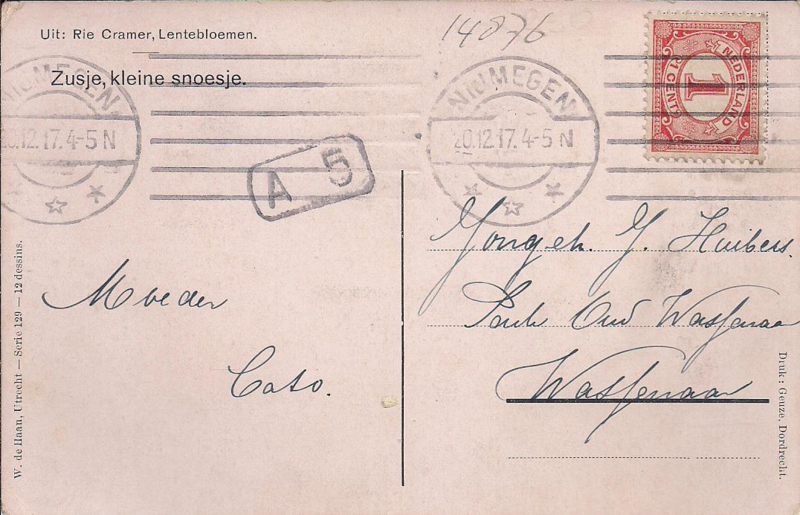 Uit: Rie Cramer, Lentebloemen.
Zusje, kleine snoesje.
14876
NIJMEGEN
20.12.17. 4-5 N
NIJMEGEN
20.12.17. 4-5 N
A 5
NEDERLAND
1
1 CENT
Moeder
Cato.
Jongeh. J. Huibers.
Oud Wassenaar
Wassenaar
W. de Haan, Utrecht — Serie 129 — 12 dessins.
Druk: Geuze, Dordrecht.